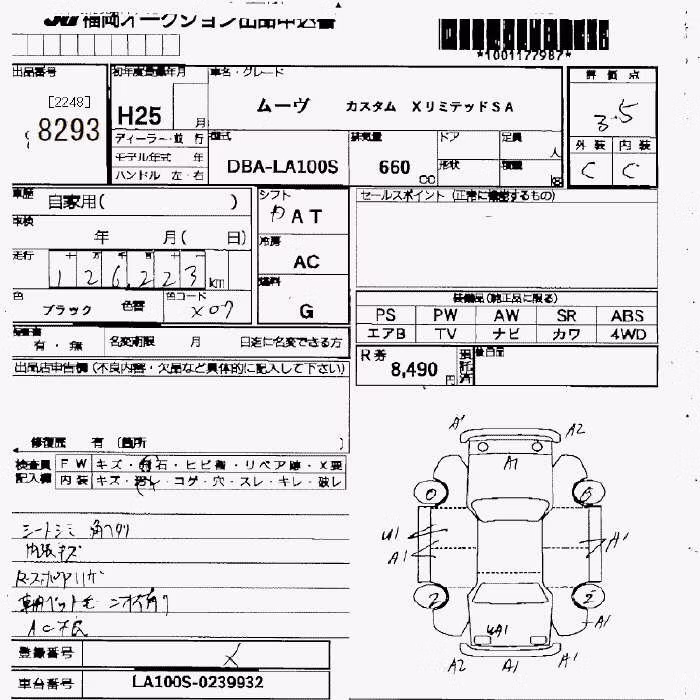 JU福岡オークション出品申込書
*1001177987*
出品番号
[2248]
8293
初年度登録年月
H25 月
車名・グレード
ムーヴ カスタム XリミテッドSA
評価点
3.5
外装 内装
C C
ディーラー・並行
モデル年式 年
ハンドル 左・右
型式
DBA-LA100S
排気量
660 CC
ドア
形状
定員
人
積載
車歴
自家用( )
車検
年 月( 日)
走行
十 万 千 百 十 一
126,223 km
色
ブラック 色替
色コード
X07
シフト
AT
冷房
AC
燃料
G
セールスポイント(正常に機能するもの)
装備品(純正品に限る)
PS PW AW SR ABS
エアB TV ナビ カワ 4WD
有・無
名変期限 月 日迄に名変できる方
R券
8,490 円
預託済
後日品
出品店申告欄(不良内容・欠品など具体的に記入して下さい)
修復歴 有 [箇所 )
検査員 FW キズ・飛石・ヒビ割・リペア跡・X要
記入欄 内装 キズ・汚レ・コゲ・穴・スレ・キレ・破レ
シートシミ
内張キズ
AC不良
登録番号
車台番号 LA100S-0239932
A1 A2
A1
U1
A1
A1
A1
UA1
A2 A1 A1